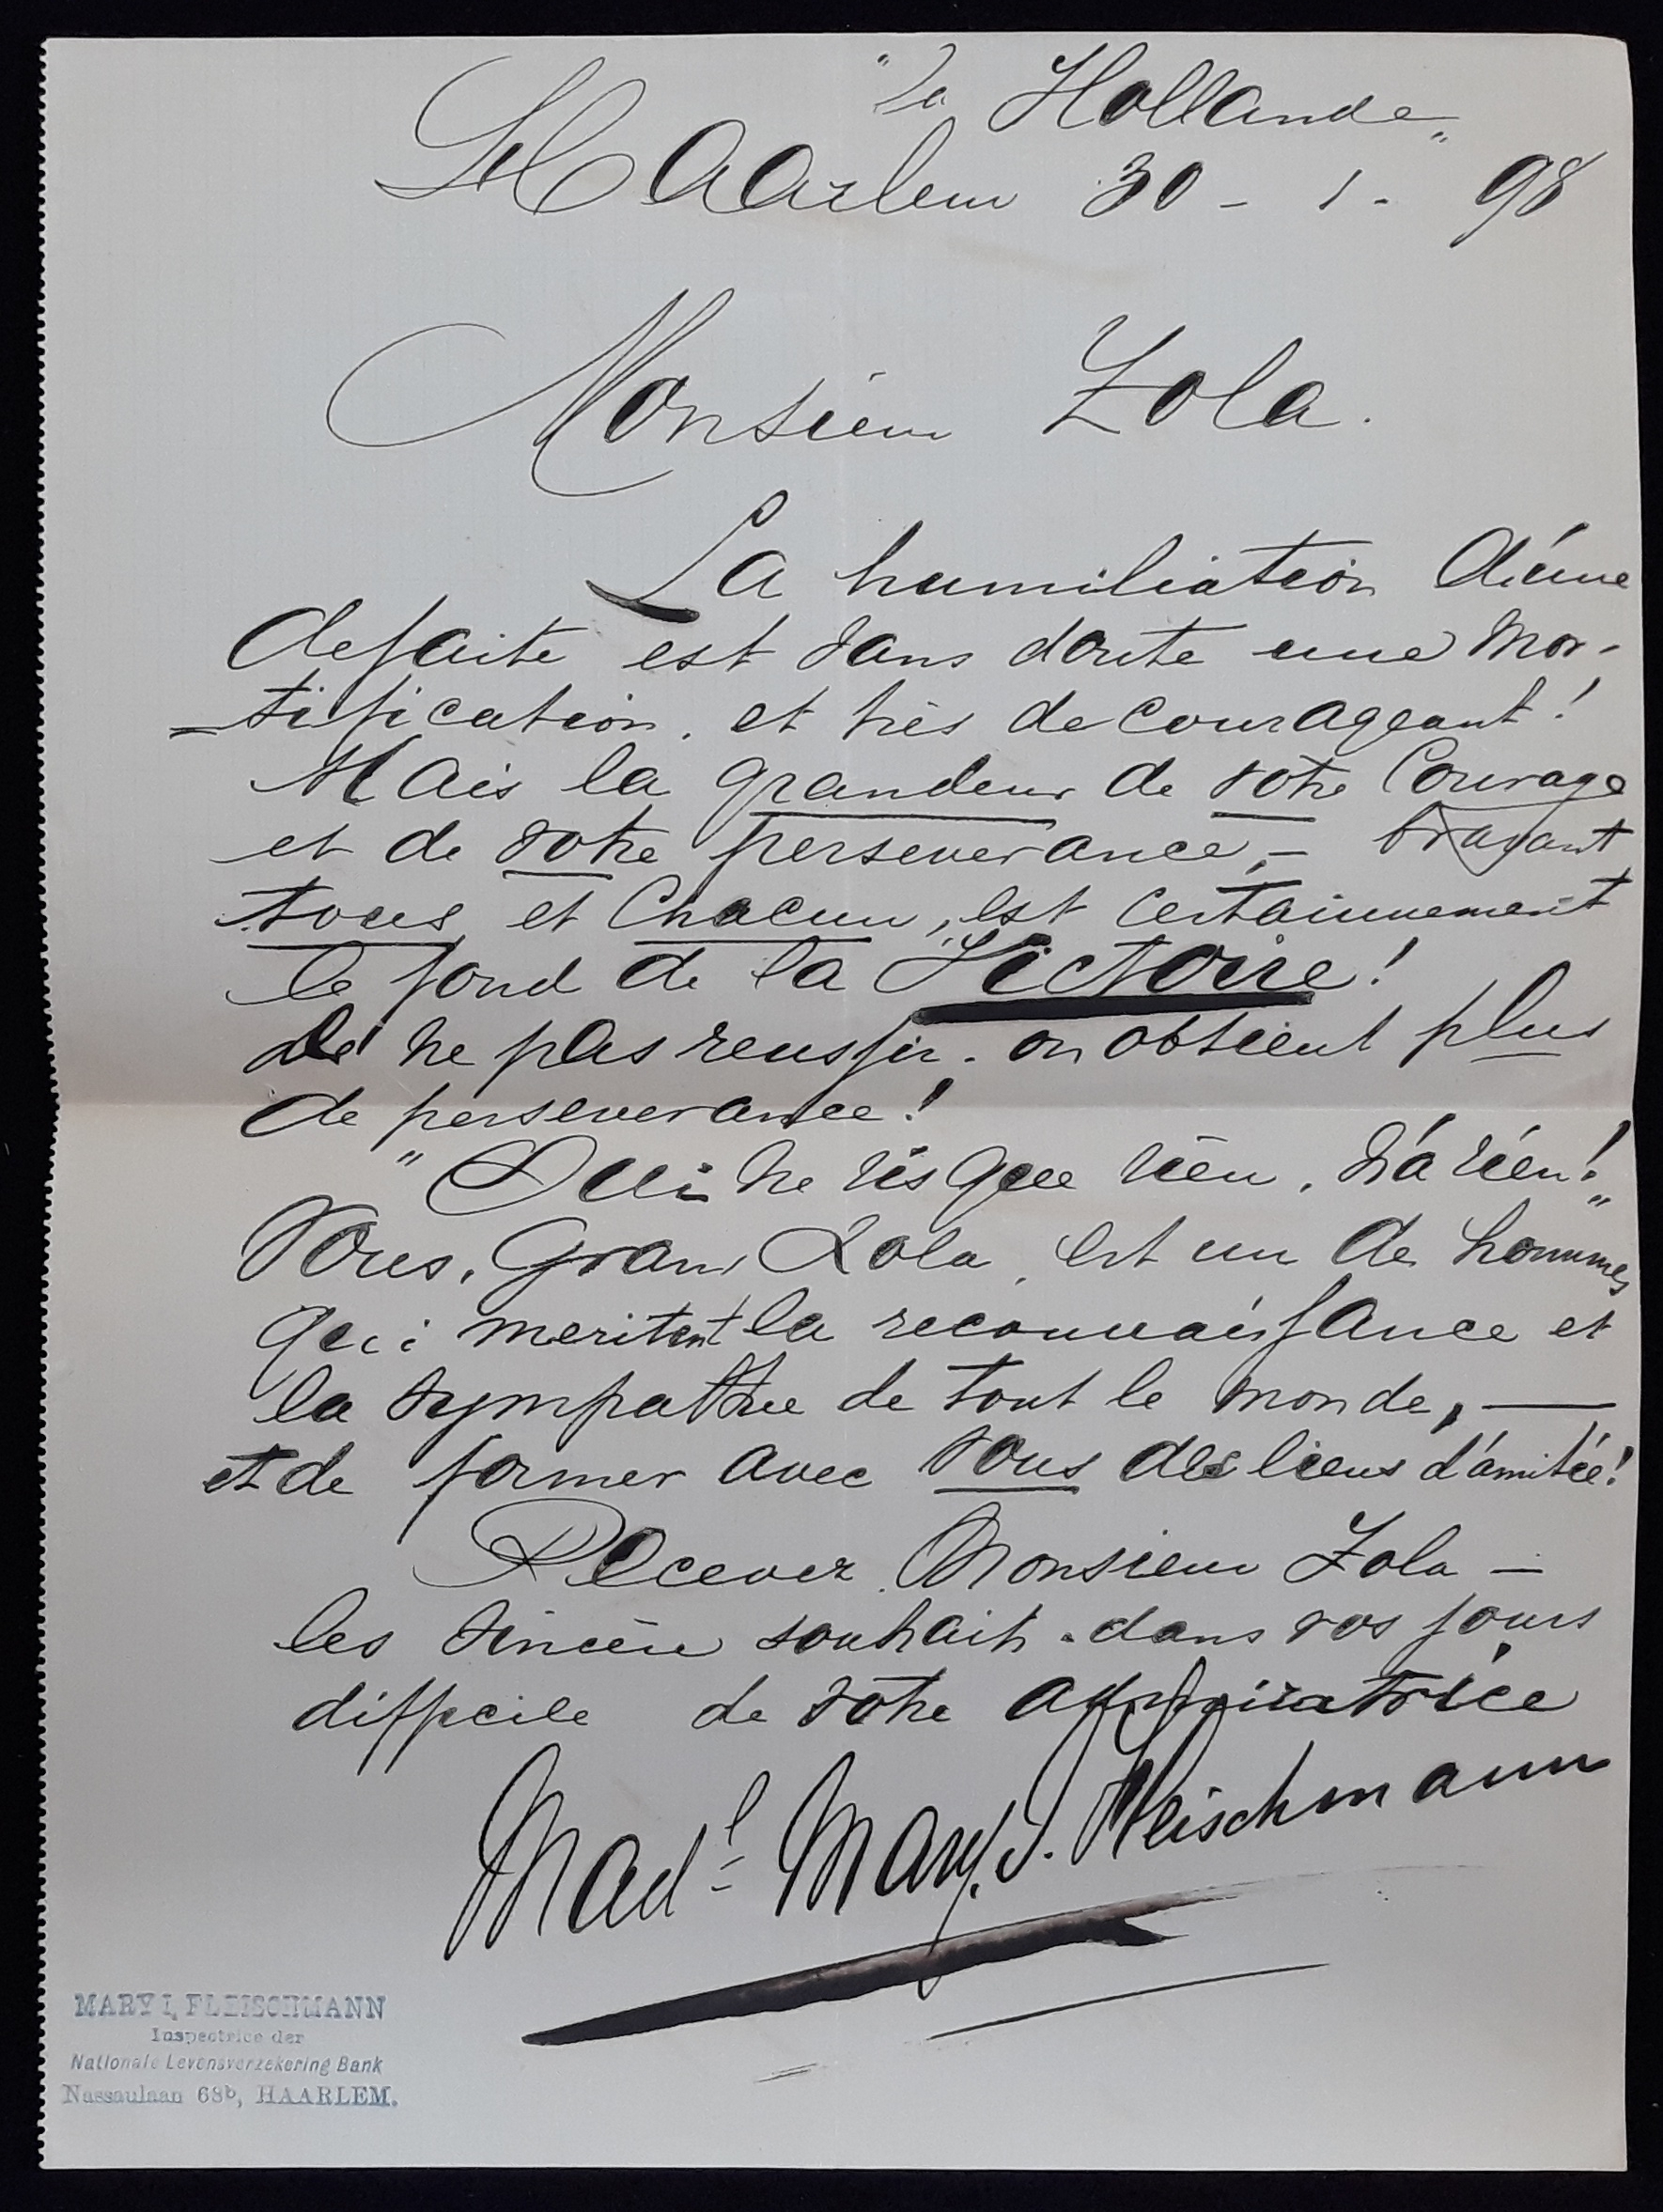 "La Hollande"
Haarlem 30 - 1 - 98
Monsieur Zola.
La humiliation d'une
defaite est sans doute une mor-
=tification, et très decourageant!
Mais la grandeur de votre Courage
et de votre perseverance, - bravant
tous et Chacun, est certainnement
le fond de la Victoire!
De ne pas reussir. on obtient plus
de perseverance!
"Qui ne risque rien, n'a rien!"
Vous, Grand Zola, est un des hommes
qui meritent la reconnaissance et
la sympathie de tout le monde, —
et de former avec vous des liens d'amitée!
Recevez Monsieur Zola —
les sincère souhaits - dans vos jours
difficile de votre appréciatrice
Madl= Mary. I. Fleischmann
MARY I. FLEISCHMANN
Inspectrice der
Nationale Levensverzekering Bank
Nassaulaan 68b, HAARLEM.